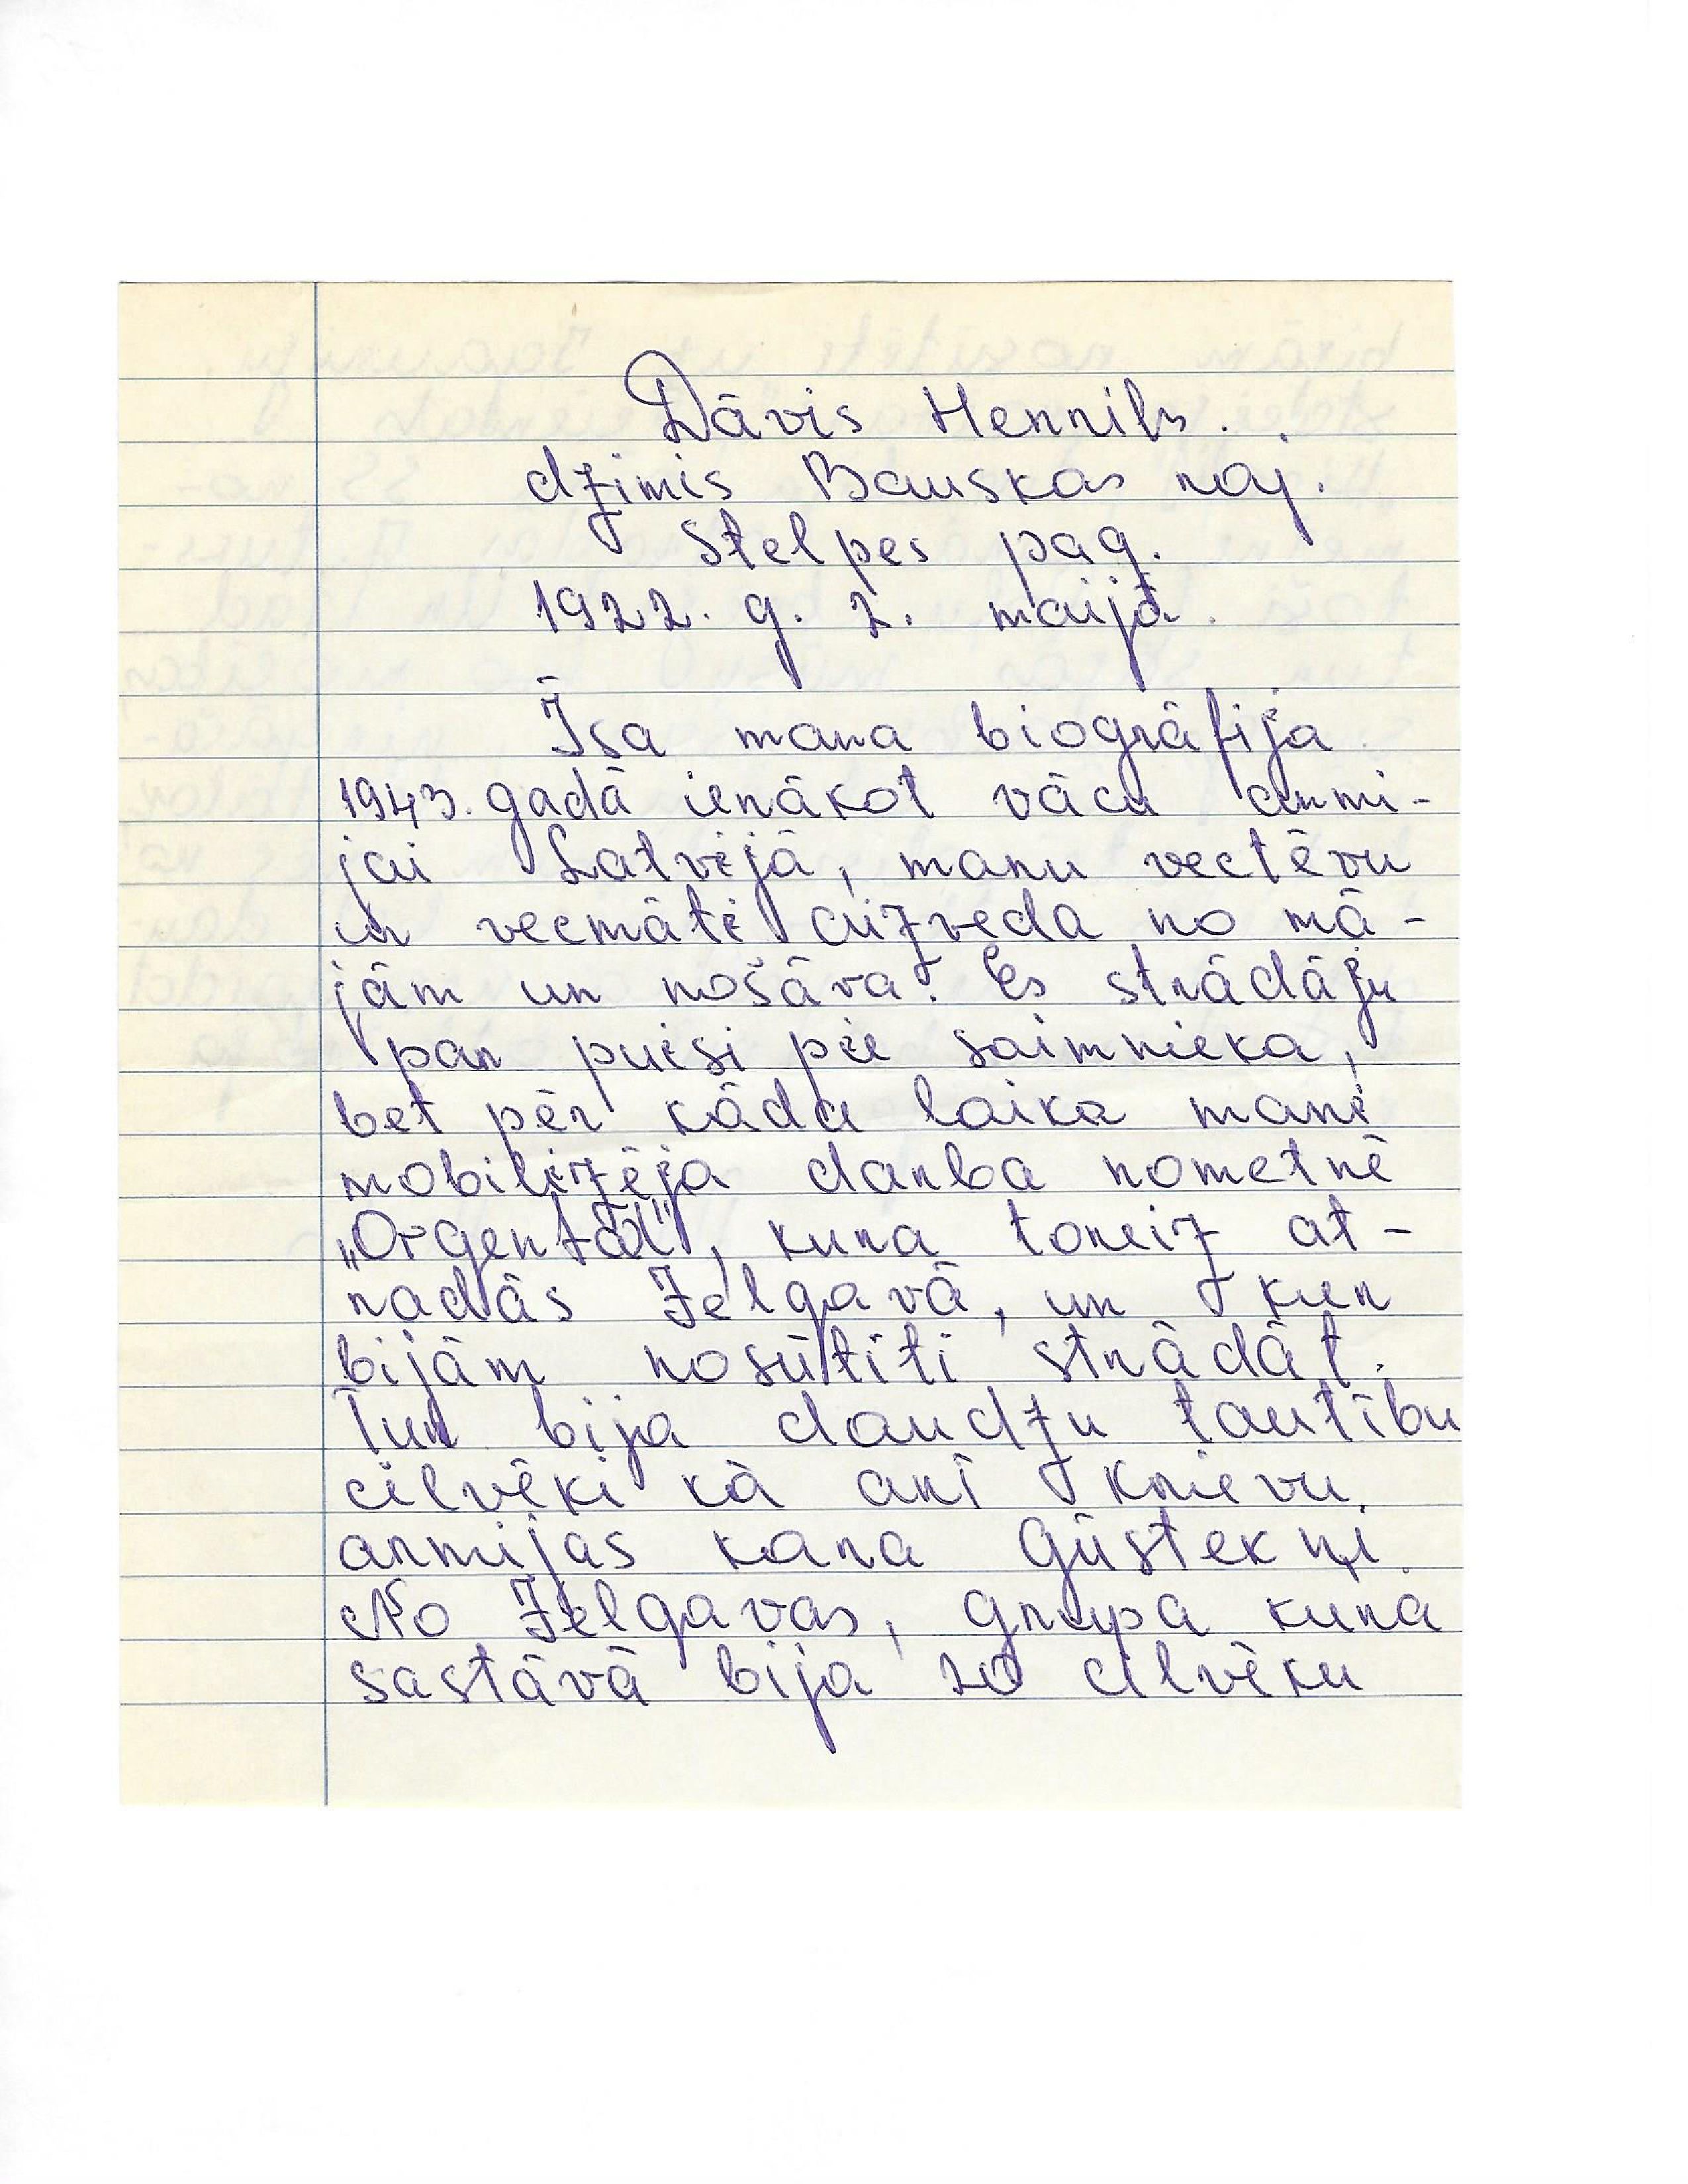 Dāvis Henriks.
dzimis Bauskas raj.
Stelpes pag.
1922. g. 2. maijā.
Īsa mana biogrāfija
1943. gadā ienākot vācu armi-
jai Latvijā, manu vectēvu
un vecmāti aizveda no mā-
jām un nošāva. Es strādāju
par puisi pie saimnieka,
bet pēr kāda laika mani
mobilizēja darba nometnē
„Orgentād", kura toreiz at-
radās Jelgavā, un kur
bijām nosūtīti strādāt.
Tur bija daudzu tautību
cilvēki kā arī krievu
armijas kara gūstekņi.
No Jelgavas, grupa kura
sastāvā bija 20 cilvēku